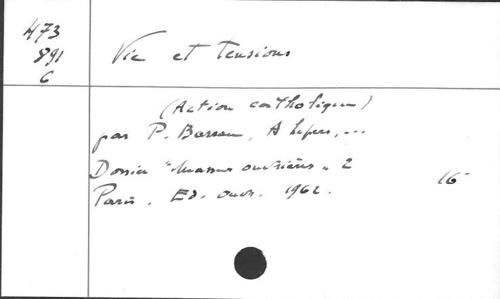 473
891
6
Vie et tensions
(Action catholique)
par P. Barrau, A ...
Dossier "Masses ouvrières" 2
Paris. Ed. ouvr. 1962.
16